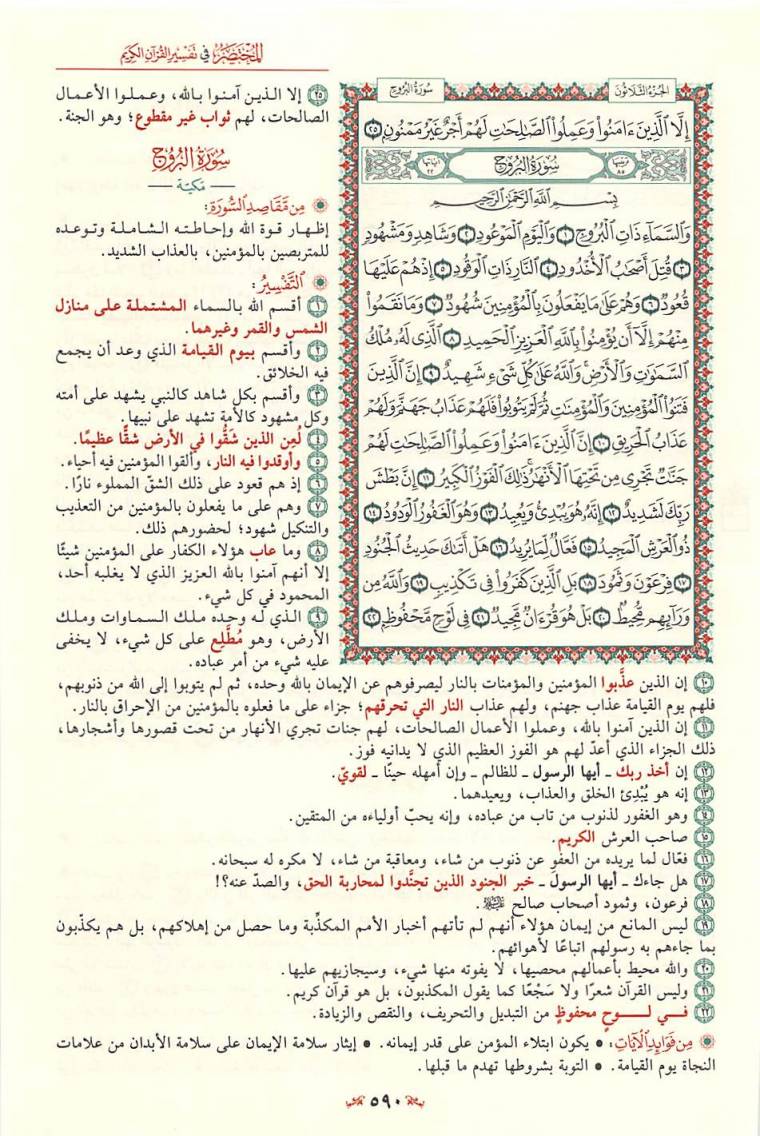 المختصر في تفسير القرآن الكريم
الجزء الثلاثون
سورة البروج
إِلَّا ٱلَّذِينَ ءَامَنُواْ وَعَمِلُواْ ٱلصَّٰلِحَٰتِ لَهُمْ أَجْرٌ غَيْرُ مَمْنُونٍ ٢٥
ترتيبها ٨٥
سورة البروج
آياتها ٢٢
بِسْمِ ٱللَّهِ ٱلرَّحْمَٰنِ ٱلرَّحِيمِ
وَٱلسَّمَآءِ ذَاتِ ٱلْبُرُوجِ ١ وَٱلْيَوْمِ ٱلْمَوْعُودِ ٢ وَشَاهِدٍ وَمَشْهُودٍ
٣ قُتِلَ أَصْحَٰبُ ٱلْأُخْدُودِ ٤ ٱلنَّارِ ذَاتِ ٱلْوَقُودِ ٥ إِذْ هُمْ عَلَيْهَا
قُعُودٌ ٦ وَهُمْ عَلَىٰ مَا يَفْعَلُونَ بِٱلْمُؤْمِنِينَ شُهُودٌ ٧ وَمَا نَقَمُواْ
مِنْهُمْ إِلَّآ أَن يُؤْمِنُواْ بِٱللَّهِ ٱلْعَزِيزِ ٱلْحَمِيدِ ٨ ٱلَّذِى لَهُۥ مُلْكُ
ٱلسَّمَٰوَٰتِ وَٱلْأَرْضِ وَٱللَّهُ عَلَىٰ كُلِّ شَىْءٍ شَهِيدٌ ٩ إِنَّ ٱلَّذِينَ
فَتَنُواْ ٱلْمُؤْمِنِينَ وَٱلْمُؤْمِنَٰتِ ثُمَّ لَمْ يَتُوبُواْ فَلَهُمْ عَذَابُ جَهَنَّمَ وَلَهُمْ
عَذَابُ ٱلْحَرِيقِ ١٠ إِنَّ ٱلَّذِينَ ءَامَنُواْ وَعَمِلُواْ ٱلصَّٰلِحَٰتِ لَهُمْ
جَنَّٰتٌ تَجْرِى مِن تَحْتِهَا ٱلْأَنْهَٰرُ ذَٰلِكَ ٱلْفَوْزُ ٱلْكَبِيرُ ١١ إِنَّ بَطْشَ
رَبِّكَ لَشَدِيدٌ ١٢ إِنَّهُۥ هُوَ يُبْدِئُ وَيُعِيدُ ١٣ وَهُوَ ٱلْغَفُورُ ٱلْوَدُودُ ١٤
ذُو ٱلْعَرْشِ ٱلْمَجِيدُ ١٥ فَعَّالٌ لِّمَا يُرِيدُ ١٦ هَلْ أَتَىٰكَ حَدِيثُ ٱلْجُنُودِ
١٧ فِرْعَوْنَ وَثَمُودَ ١٨ بَلِ ٱلَّذِينَ كَفَرُواْ فِى تَكْذِيبٍ ١٩ وَٱللَّهُ مِن
وَرَآئِهِم مُّحِيطٌ ٢٠ بَلْ هُوَ قُرْءَانٌ مَّجِيدٌ ٢١ فِى لَوْحٍ مَّحْفُوظٍ ٢٢
٢٥ إلا الذين آمنوا بالله، وعملوا الأعمال
الصالحات، لهم ثواب غير مقطوع؛ وهو الجنة.
سورة البروج
— مكية —
من مقاصد السورة:
إظهار قوة الله وإحاطته الشاملة وتوعده
للمتربصين بالمؤمنين، بالعذاب الشديد.
التفسير:
١ أقسم الله بالسماء المشتملة على منازل
الشمس والقمر وغيرهما.
٢ وأقسم بيوم القيامة الذي وعد أن يجمع
فيه الخلائق.
٣ وأقسم بكل شاهد كالنبي يشهد على أمته
وكل مشهود كالأمة تشهد على نبيها.
٤ لُعِن الذين شَقُّوا في الأرض شقًّا عظيمًا.
٥ وأوقدوا فيه النار، وألقوا المؤمنين فيه أحياء.
٦ إذ هم قعود على ذلك الشقّ المملوء نارًا.
٧ وهم على ما يفعلون بالمؤمنين من التعذيب
والتنكيل شهود؛ لحضورهم ذلك.
٨ وما عاب هؤلاء الكفار على المؤمنين شيئًا
إلا أنهم آمنوا بالله العزيز الذي لا يغلبه أحد،
المحمود في كل شيء.
٩ الذي له وحده ملك السماوات وملك
الأرض، وهو مُطَّلِع على كل شيء، لا يخفى
عليه شيء من أمر عباده.
١٠ إن الذين عذَّبوا المؤمنين والمؤمنات بالنار ليصرفوهم عن الإيمان بالله وحده، ثم لم يتوبوا إلى الله من ذنوبهم،
فلهم يوم القيامة عذاب جهنم، ولهم عذاب النار التي تحرقهم؛ جزاء على ما فعلوه بالمؤمنين من الإحراق بالنار.
١١ إن الذين آمنوا بالله، وعملوا الأعمال الصالحات، لهم جنات تجري الأنهار من تحت قصورها وأشجارها،
ذلك الجزاء الذي أعدّ لهم هو الفوز العظيم الذي لا يدانيه فوز.
١٢ إن أخذ ربك ـ أيها الرسول ـ للظالم ـ وإن أمهله حينًا ـ لقويّ.
١٣ إنه هو يُبْدِئ الخلق والعذاب، ويعيدهما.
١٤ وهو الغفور لذنوب من تاب من عباده، وإنه يحبّ أولياءه من المتقين.
١٥ صاحب العرش الكريم.
١٦ فعّال لما يريده من العفو عن ذنوب من شاء، ومعاقبة من شاء، لا مكره له سبحانه.
١٧ هل جاءك ـ أيها الرسول ـ خبر الجنود الذين تجنَّدوا لمحاربة الحق، والصدّ عنه؟!
١٨ فرعون، وثمود أصحاب صالح عليه السلام.
١٩ ليس المانع من إيمان هؤلاء أنهم لم تأتهم أخبار الأمم المكذِّبة وما حصل من إهلاكهم، بل هم يكذّبون
بما جاءهم به رسولهم اتباعًا لأهوائهم.
٢٠ والله محيط بأعمالهم محصيها، لا يفوته منها شيء، وسيجازيهم عليها.
٢١ وليس القرآن شعرًا ولا سَجْعًا كما يقول المكذبون، بل هو قرآن كريم.
٢٢ في لوحٍ محفوظٍ من التبديل والتحريف، والنقص والزيادة.
من فوائد الآيات: • يكون ابتلاء المؤمن على قدر إيمانه. • إيثار سلامة الإيمان على سلامة الأبدان من علامات
النجاة يوم القيامة. • التوبة بشروطها تهدم ما قبلها.
٥٩٠